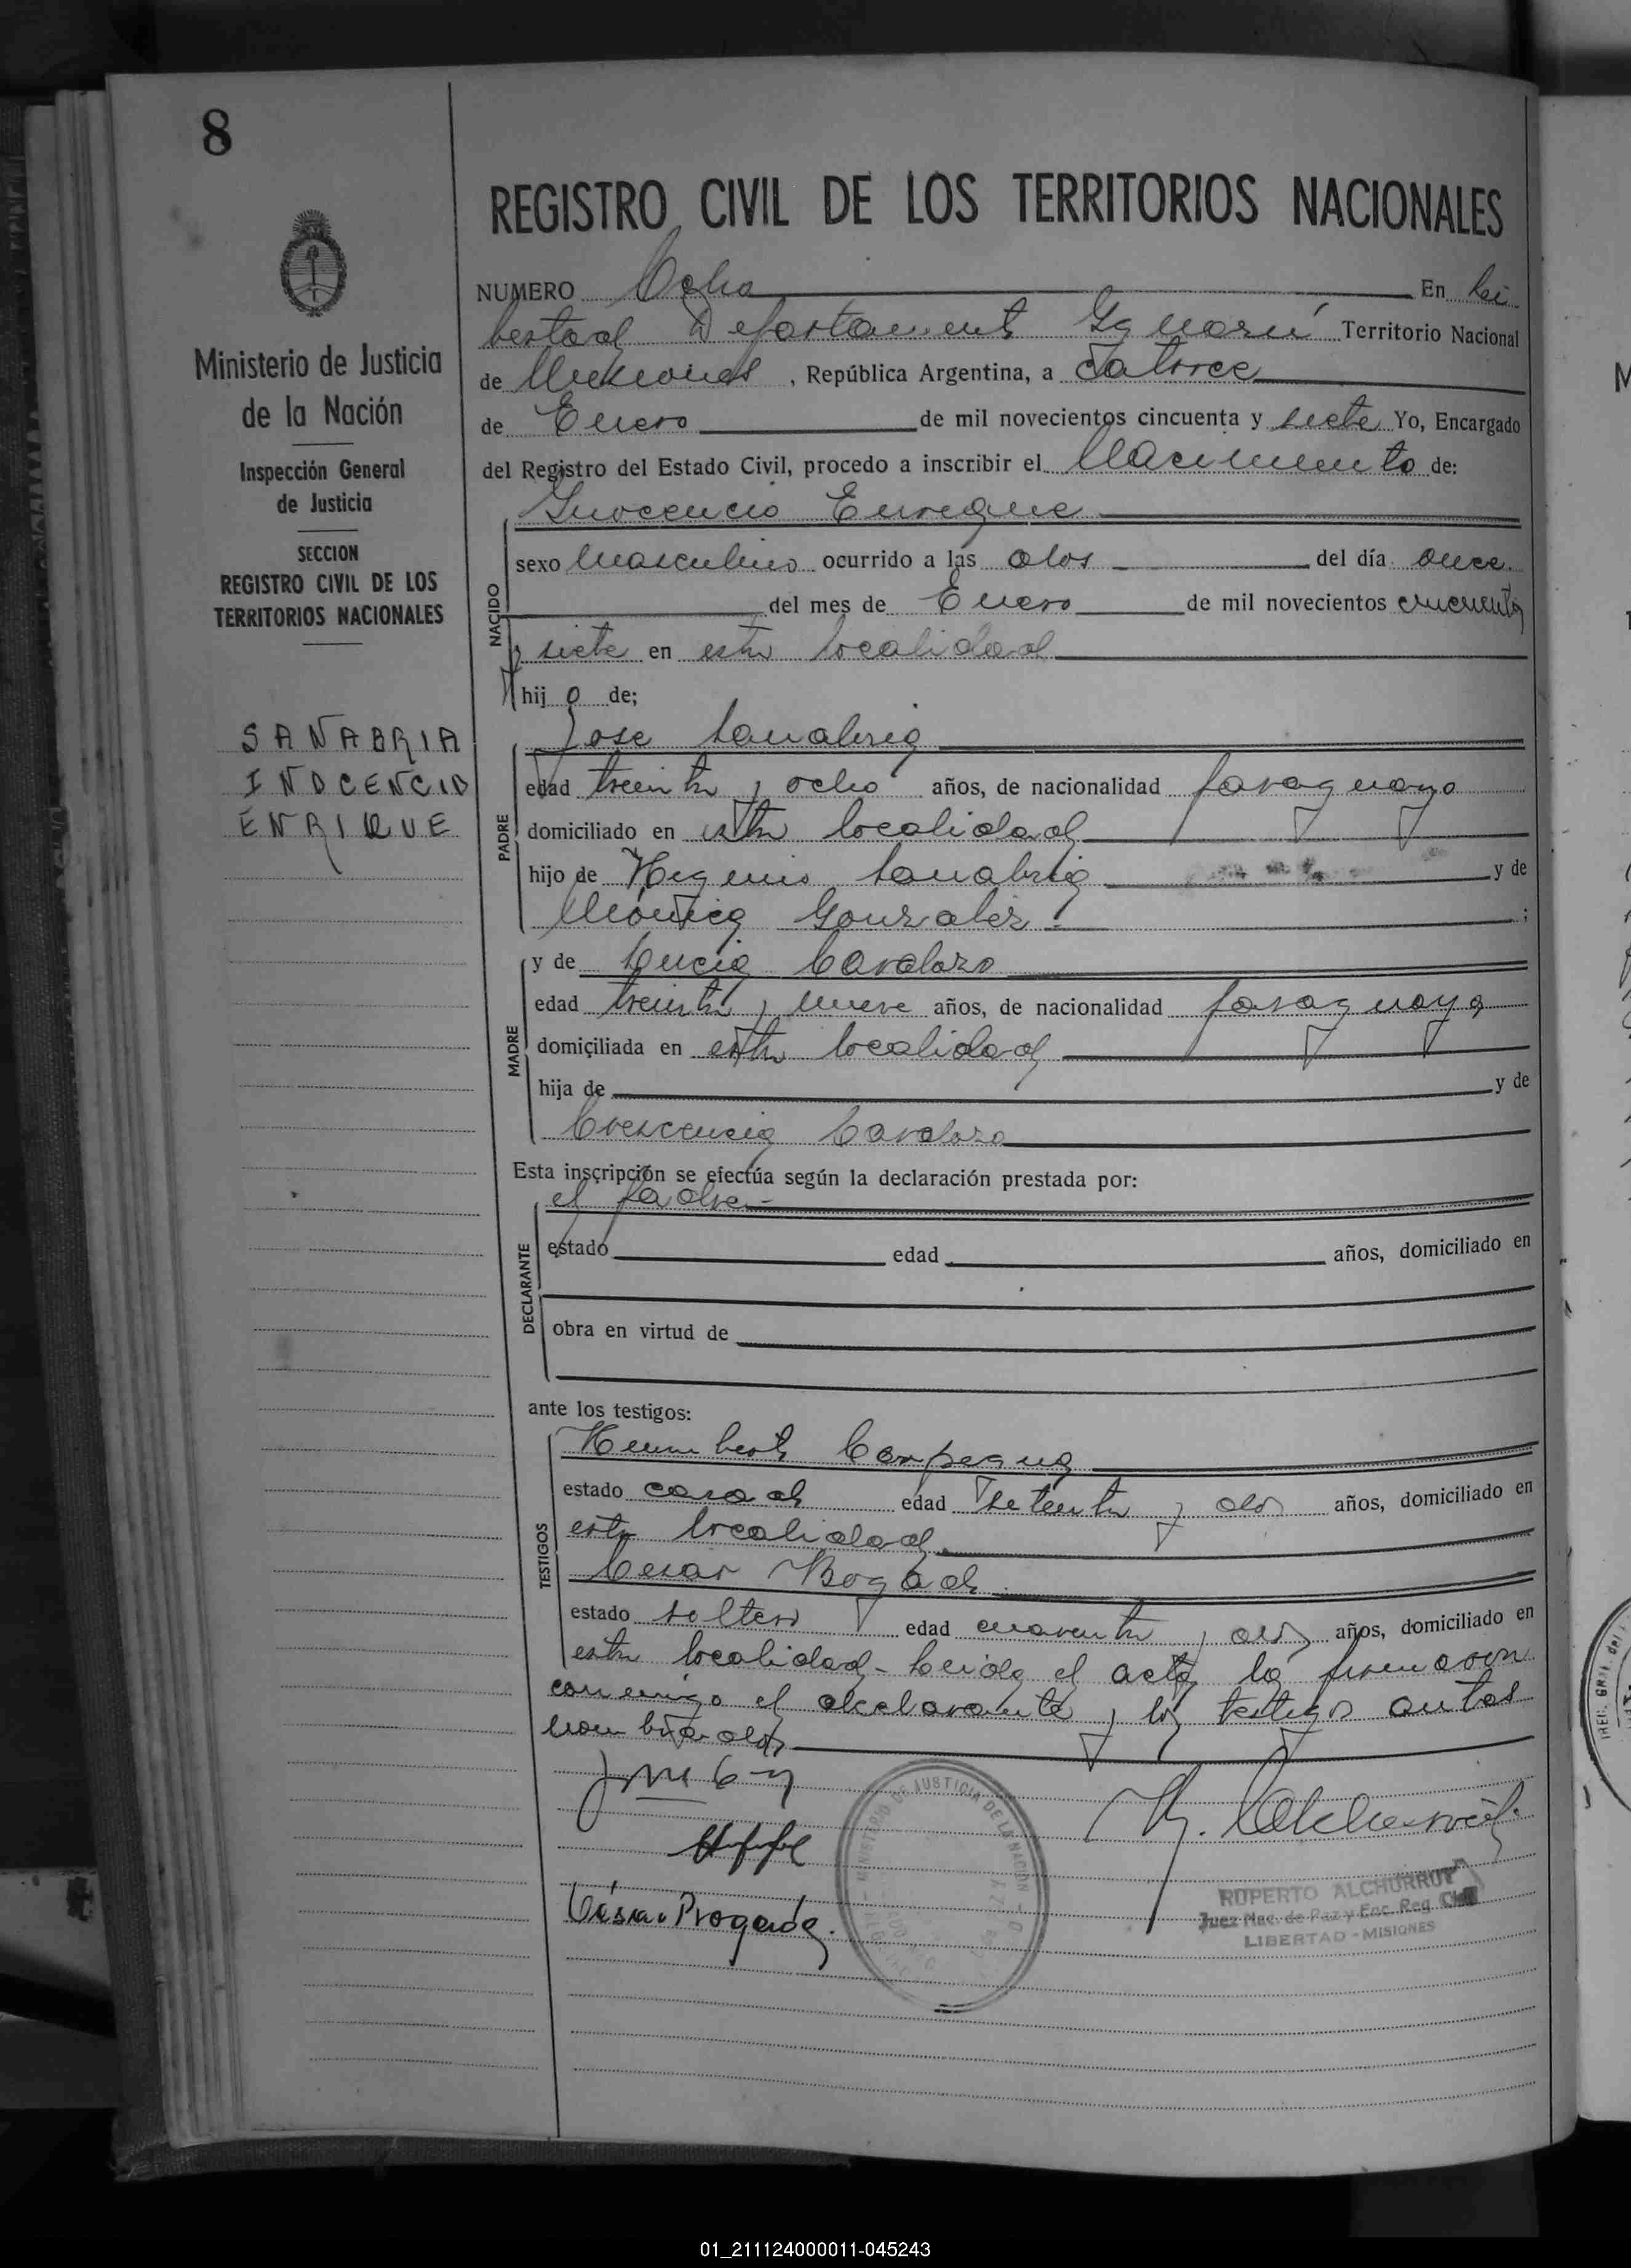 8
REGISTRO CIVIL DE LOS TERRITORIOS NACIONALES
NUMERO Ocho En Li
bertad Departamento Iguazú Territorio Nacional
de Misiones, República Argentina, a catorce
de Enero de mil novecientos cincuenta y siete Yo, Encargado
del Registro del Estado Civil, procedo a inscribir el Nacimiento de:
Inocencio Enrique
NACIDO
sexo masculino ocurrido a las dos del día once
del mes de Enero de mil novecientos cincuenta
y siete en esta localidad
hijo de;
PADRE
Jose Sanabria
edad treinta y ocho años, de nacionalidad paraguayo
domiciliado en esta localidad
hijo de Higinio Sanabria y de
Mónica Gonzalez ;
MADRE
y de Lucia Cardozo
edad treinta y nueve años, de nacionalidad paraguaya
domiciliada en esta localidad
hija de y de
Crescencia Cardozo
Esta inscripción se efectúa según la declaración prestada por:
DECLARANTE
el padre.-
estado edad años, domiciliado en
obra en virtud de
ante los testigos:
TESTIGOS
Humberto
estado casado edad setenta y dos años, domiciliado en
esta localidad
Cesar
estado soltero edad cuarenta y dos años, domiciliado en
esta localidad - Leida el acta la firmaron
conmigo el declarante y los testigos antes
nombrados
Ministerio de Justicia
de la Nación
Inspección General
de Justicia
SECCION
REGISTRO CIVIL DE LOS
TERRITORIOS NACIONALES
SANABRIA
INOCENCIO
ENRIQUE
MINISTERIO DE JUSTICIA DE LA NACION
César
RUPERTO ALCHURRUT
Juez Nac. de Paz y Enc. Reg. Civil
LIBERTAD - MISIONES
01_211124000011-045243